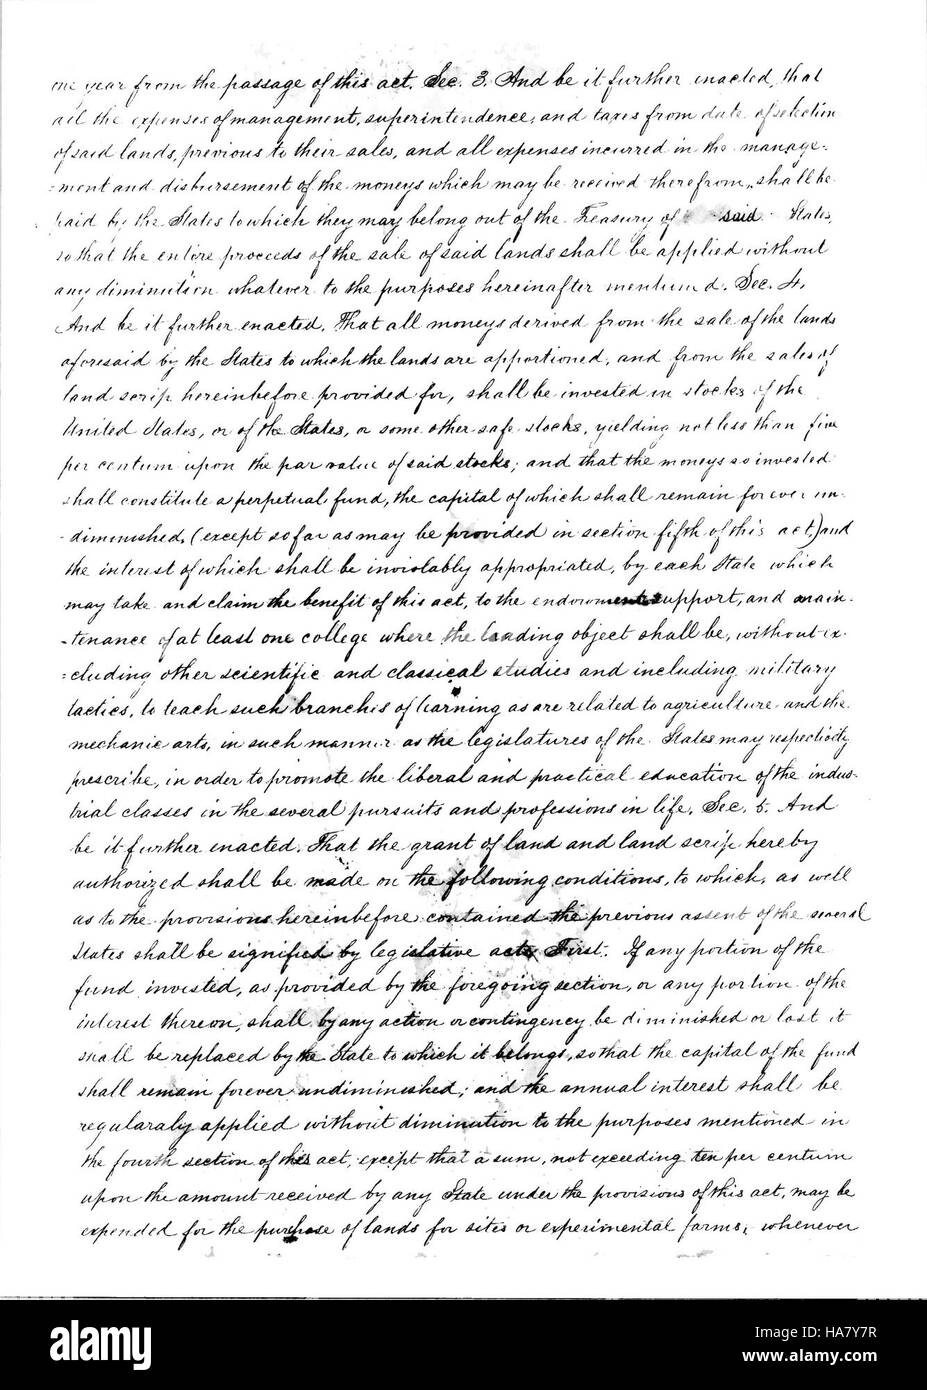 one year from the passage of this act. Sec. 3. And be it further enacted, that
all the expenses of management, superintendence, and taxes from date of selection
of said lands, previous to their sales, and all expenses incurred in the manage=
=ment and disbursement of the moneys which may be received therefrom, shall be
paid by the States to which they may belong out of the Treasury of said States,
so that the entire proceeds of the sale of said lands shall be applied without
any diminution whatever to the purposes hereinafter mentioned. Sec. 4.
And be it further enacted, That all moneys derived from the sale of the lands
aforesaid by the States to which the lands are apportioned, and from the sales of
land scrip hereinbefore provided for, shall be invested in stocks of the
United States, or of the States, or some other safe stocks, yielding not less than five
per centum upon the par value of said stocks; and that the moneys so invested
shall constitute a perpetual fund, the capital of which shall remain forever un-
-diminished, (except so far as may be provided in section fifth of this act,) and
the interest of which shall be inviolably appropriated, by each State which
may take and claim the benefit of this act, to the endowment support, and main-
-tenance of at least one college where the leading object shall be, without ex-
=cluding other scientific and classical studies and including military
tactics, to teach such branches of learning as are related to agriculture and the
mechanic arts, in such manner as the legislatures of the States may respectively
prescribe, in order to promote the liberal and practical education of the indus-
trial classes in the several pursuits and professions in life. Sec. 5. And
be it further enacted. That the grant of land and land scrip hereby
authorized shall be made on the following conditions, to which, as well
as to the provisions hereinbefore contained the previous assent of the several
States shall be signified by legislative acts First. If any portion of the
fund invested, as provided by the foregoing section, or any portion of the
interest thereon, shall by any action or contingency be diminished or lost it
shall be replaced by the State to which it belongs, so that the capital of the fund
shall remain forever undiminished; and the annual interest shall be
regularaly applied without diminution to the purposes mentioned in
the fourth section of this act, except that a sum, not exceeding ten per centum
upon the amount received by any State under the provisions of this act, may be
expended for the purchase of lands for sites or experimental farms, whenever
alamy
Image ID: HA7Y7R
www.alamy.com